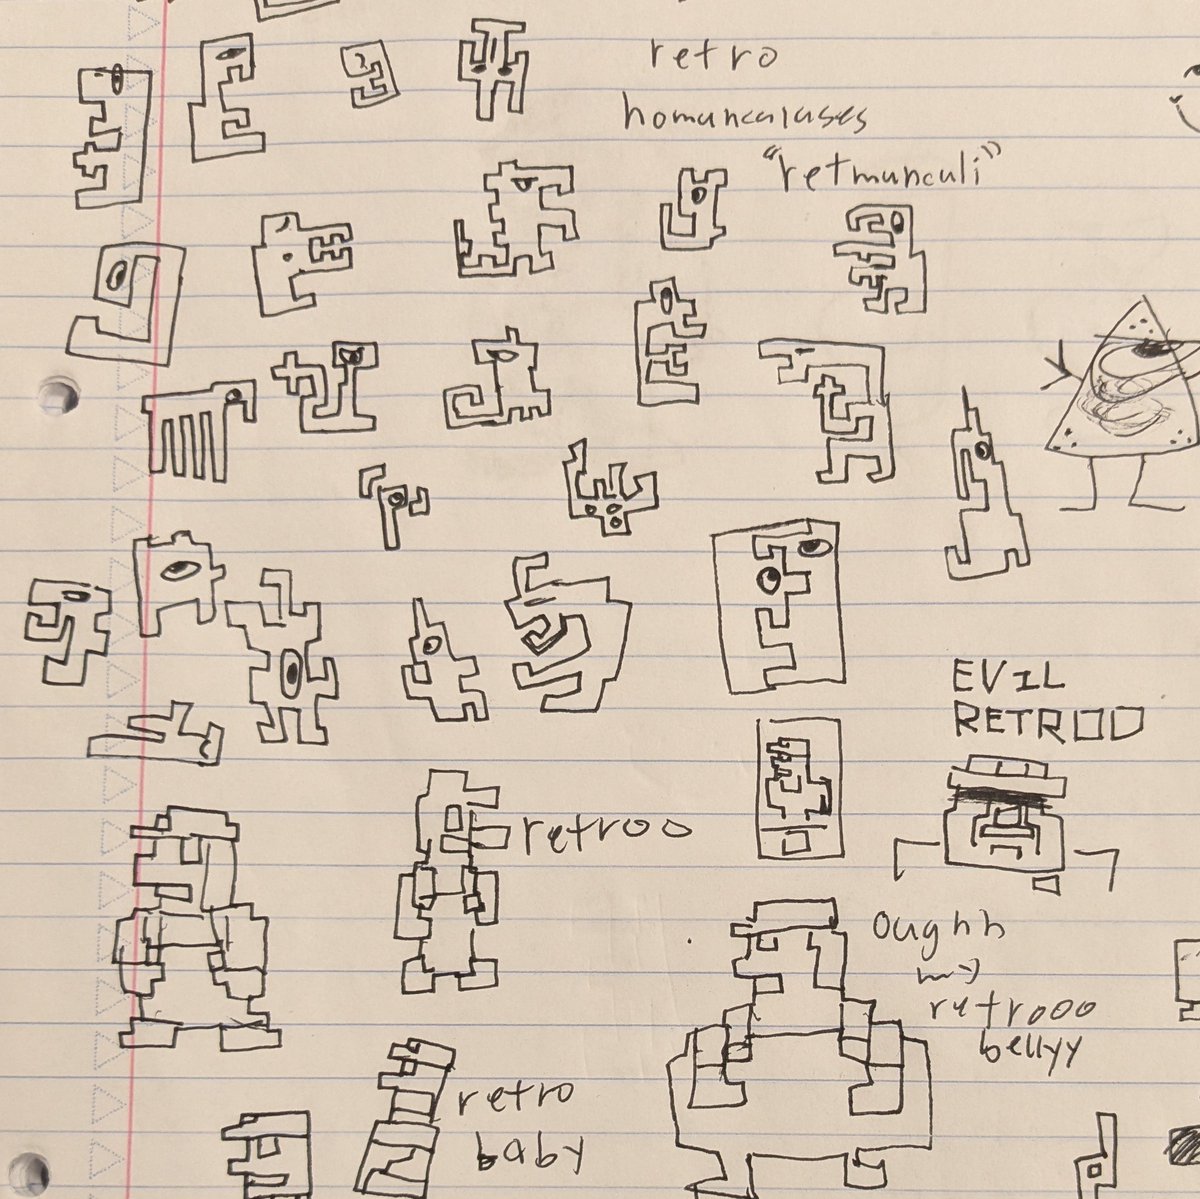 retro
homunculuses
"retmunculi"
EVIL
RETROO
retroo o
oughh
my
retrooo
bellyy
retro
baby